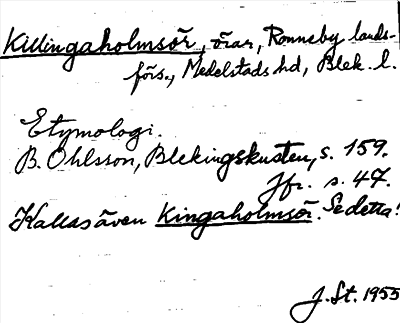 Killingaholmsör, örar, Ronneby lands-
förs., Medelstads hd, Blek. l.
Etymologi.
B. Ohlsson, Blekingskusten, s. 159.
Jfr. s. 47.
Kallas även Kingaholmsör. Se detta!
J. St. 1955